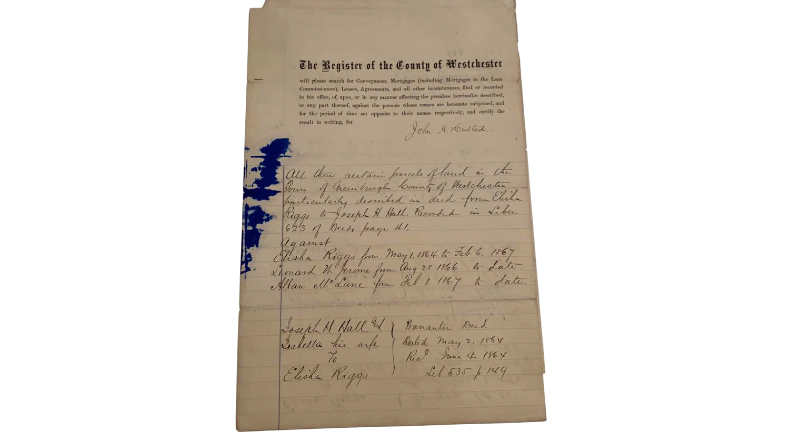 The Register of the County of Westchester
will please search for Conveyances, Mortgages (including Mortgages to the Loan
Commissioners), Leases, Agreements, and all other incumbrances, filed or recorded
in his office, of, upon, or in any manner affecting the premises hereinafter described,
or any part thereof, against the persons whose names are hereunto subjoined, and
for the period of time set opposite to their names respectively, and certify the
result in writing, for
John
All those certain parcels of land in the
Town of Greenburgh County of Westchester
particularly described in deed from Elisha
Riggs to Joseph H Hall Recorded in Liber
623 of Deeds page 41.
Against
Elisha Riggs from May 1. 1864 to Feb 6. 1867
Leonard W. Jerome from Aug 28 1866 to date
Allan McLane from Feb 1 1867 to date
Joseph H Hall
his wife
To
Elisha Riggs
Warrantee Deed
Dated May 2. 1864
Recd June 4. 1864
Lib 535 p 149